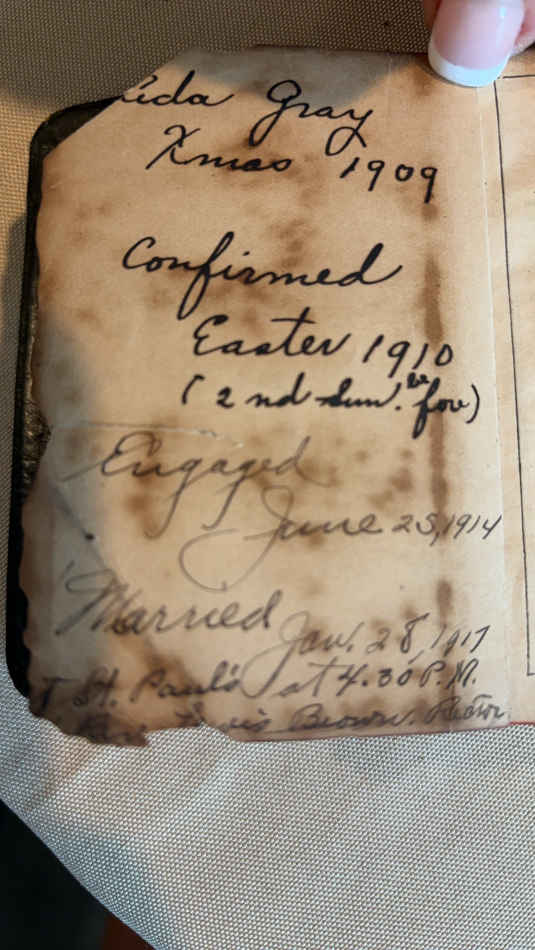 Lida Gray
Xmas 1909
Confirmed
Easter 1910
(2nd Sun. before)
Engaged
June 25, 1914
Married
Jan. 28, 1917
T St. Paul's at 4.30 P.M.
Brown. Rector